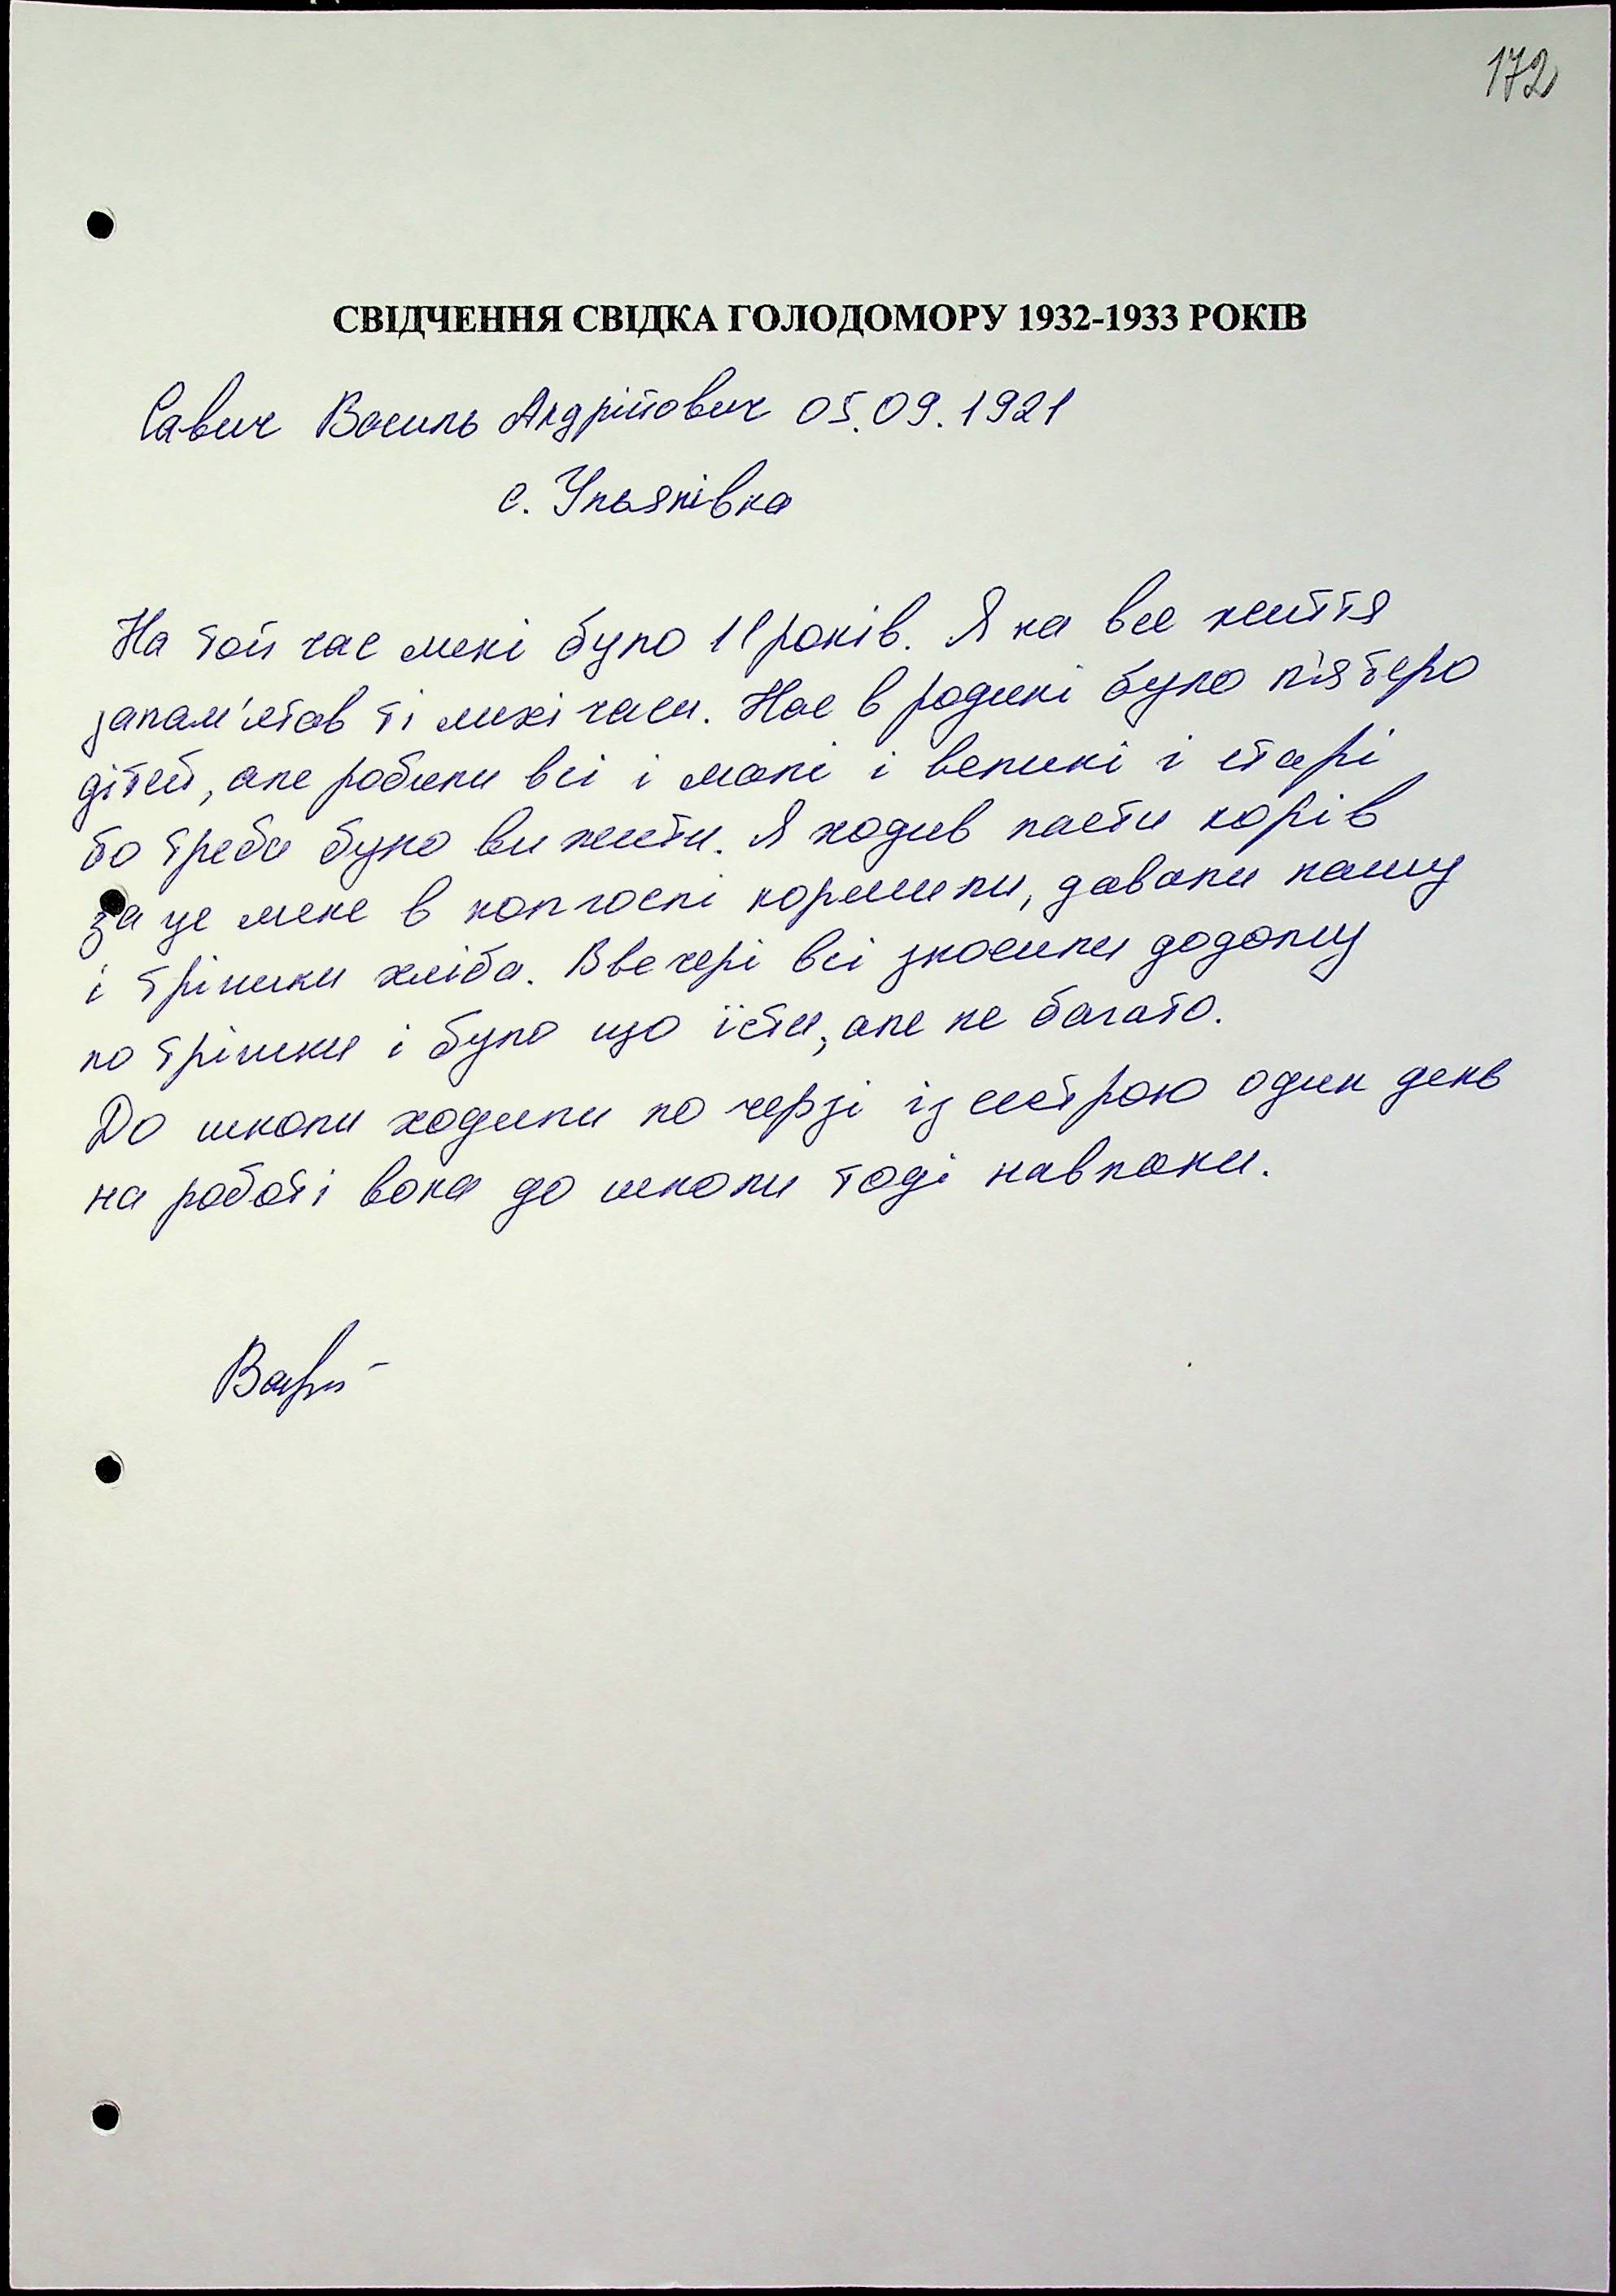 172
СВІДЧЕННЯ СВІДКА ГОЛОДОМОРУ 1932-1933 РОКІВ
Савич Василь Андрійович 05.09.1921
с. Ульянівка
На той час мені було 11 років. Я на все життя
запам'ятав ті лихі часи. Нас в родині було п'ятеро
дітей, але робили всі і малі і великі і старі
бо треба було вижити. Я ходив пасти корів
за це мене в колгоспі кормили, давали кашу
і трішки хліба. Ввечері всі зносили додому
по трішки і було що їсти, але не багато.
До школи ходили по черзі із сестрою один день
на роботі вона до школи тоді навпаки.